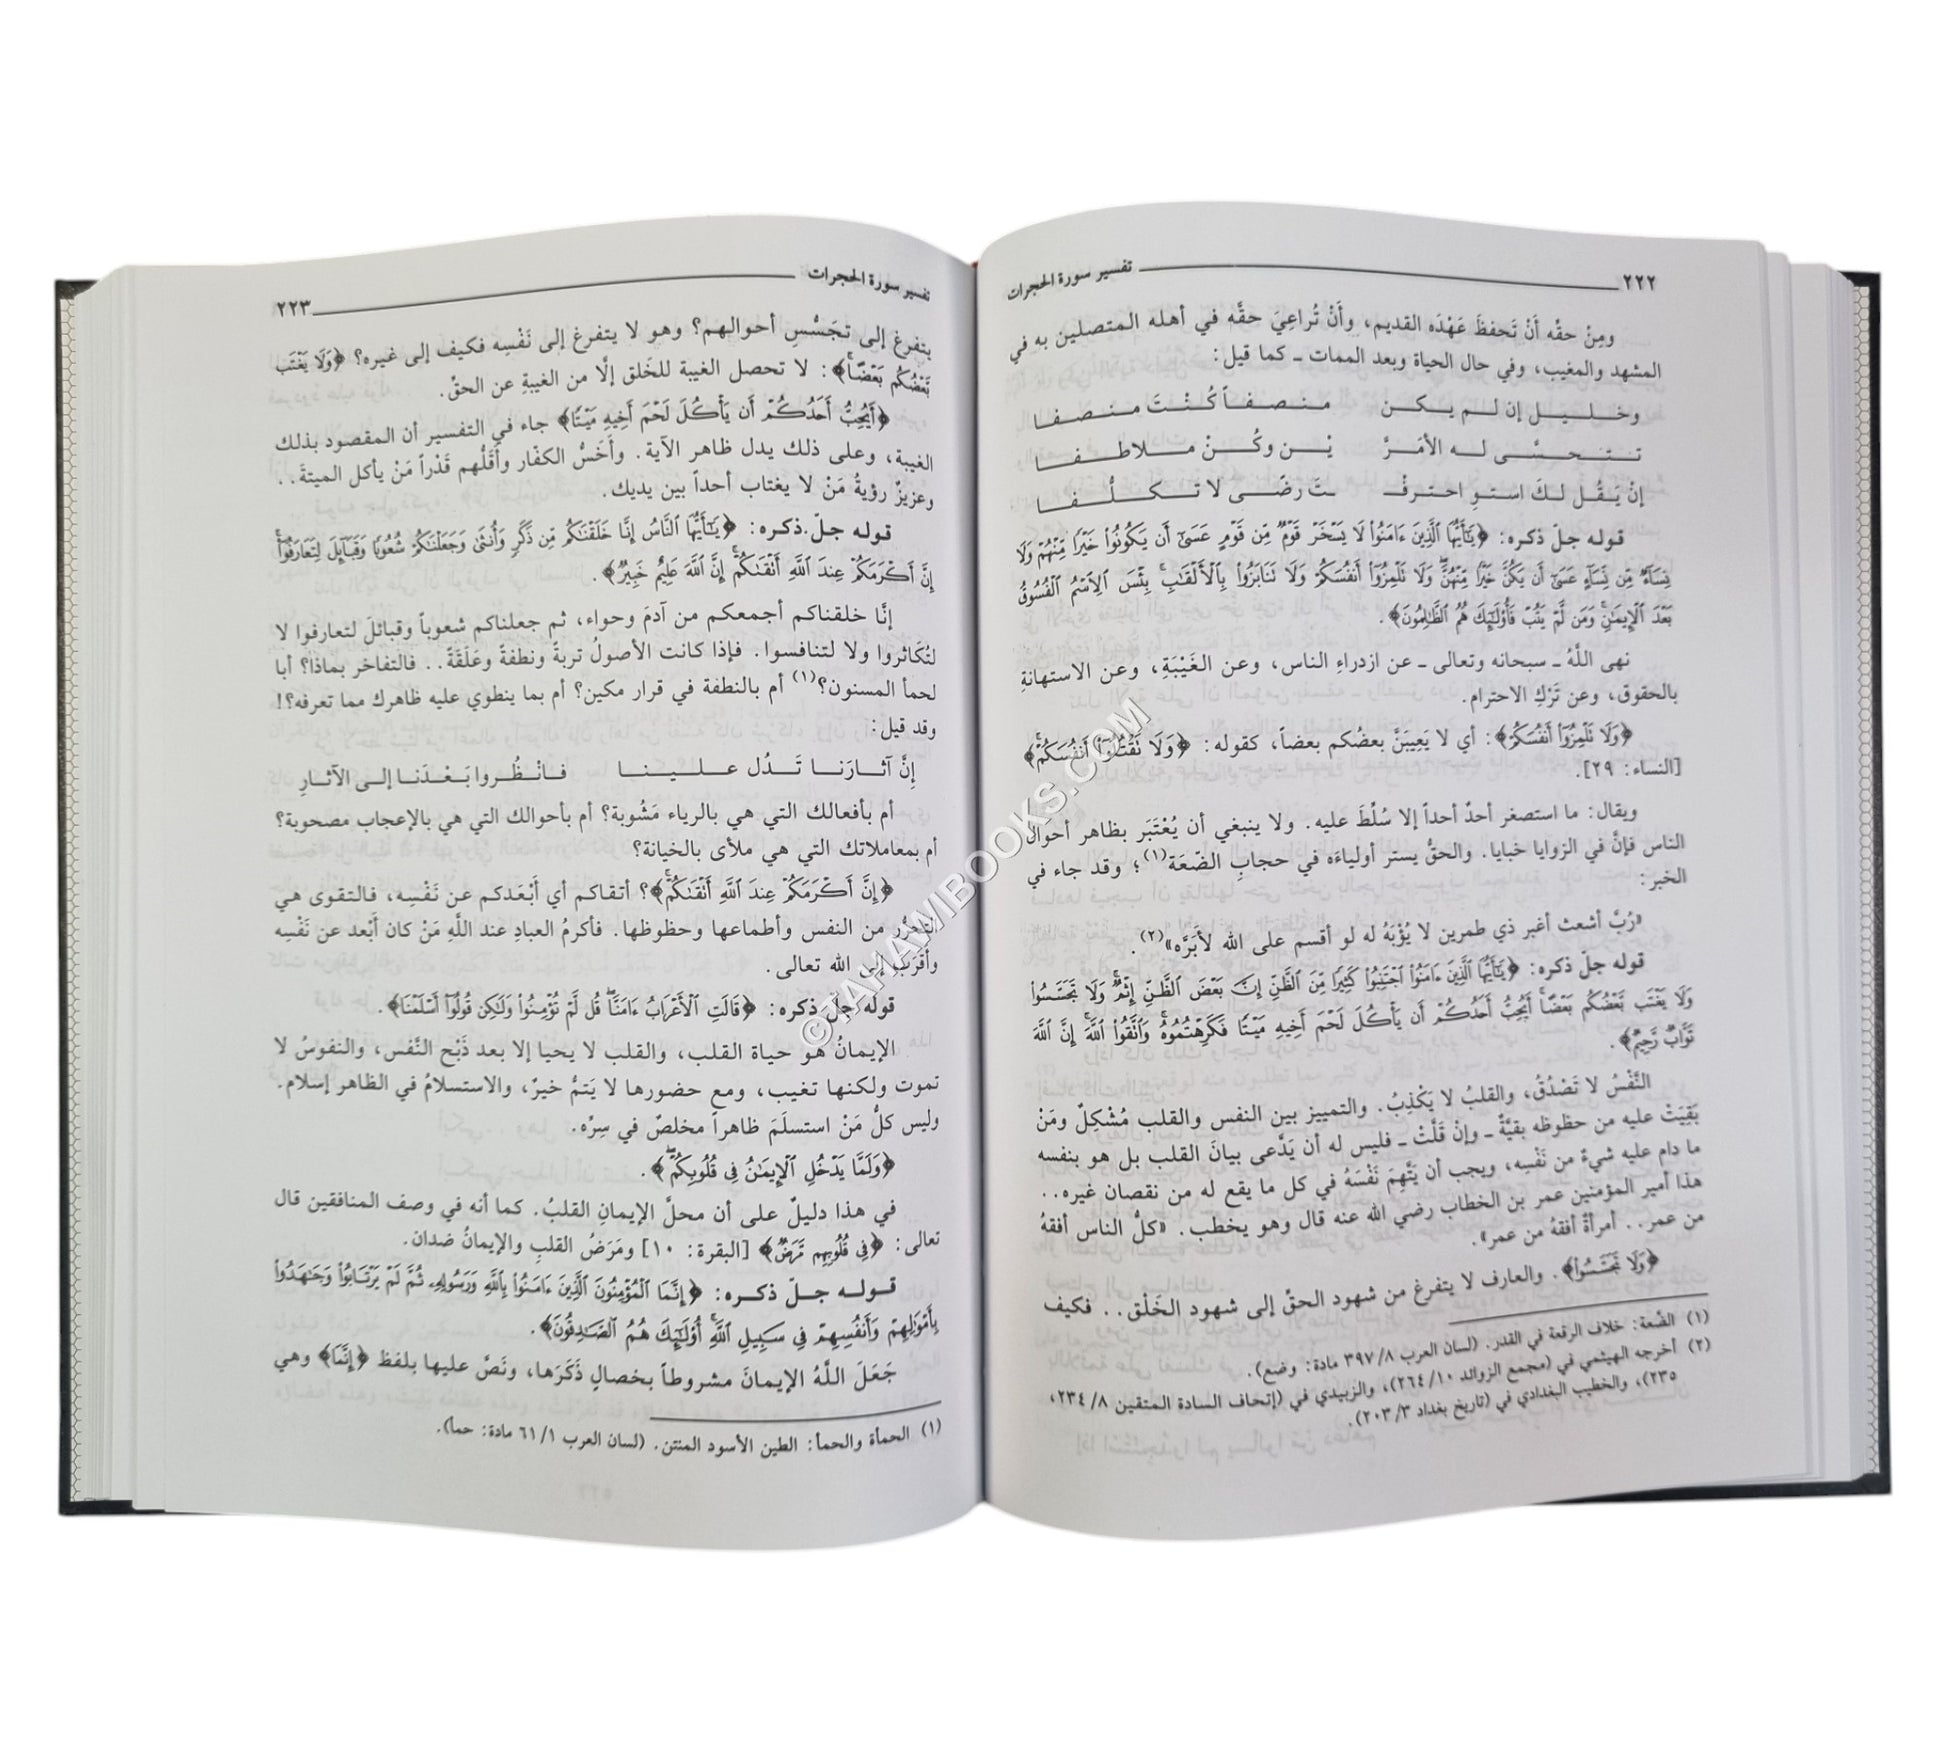 ٢٢٢ تفسير سورة الحجرات
ومِنْ حقه أَنْ تَحفظَ عَهْدَه القديم، وأَنْ تُراعِيَ حقَّه في أهله المتصلين به في
المشهد والمغيب، وفي حال الحياة وبعد الممات ـ كما قيل:
وخليل إن لم يكن منصفاً كُنْتَ منصفا
تتحسَّى له الأمَرَّ يْن وكُنْ ملاطفا
إنْ يَقُل لكَ استوِ احترقْ تَ رضًى لا تكلُّفا
قوله جلّ ذكره: ﴿يَٰٓأَيُّهَا ٱلَّذِينَ ءَامَنُوا۟ لَا يَسْخَرْ قَوْمٌ مِّن قَوْمٍ عَسَىٰٓ أَن يَكُونُوا۟ خَيْرًا مِّنْهُمْ وَلَا
نِسَآءٌ مِّن نِّسَآءٍ عَسَىٰٓ أَن يَكُنَّ خَيْرًا مِّنْهُنَّ وَلَا تَلْمِزُوٓا۟ أَنفُسَكُمْ وَلَا تَنَابَزُوا۟ بِٱلْأَلْقَٰبِ بِئْسَ ٱلِٱسْمُ ٱلْفُسُوقُ
بَعْدَ ٱلْإِيمَٰنِ وَمَن لَّمْ يَتُبْ فَأُو۟لَٰٓئِكَ هُمُ ٱلظَّٰلِمُونَ﴾.
نهى اللَّهُ ـ سبحانه وتعالى ـ عن ازدراءِ الناس، وعن الغَيْبَةِ، وعن الاستهانةِ
بالحقوق، وعن تَرْكِ الاحترام.
﴿وَلَا تَلْمِزُوٓا۟ أَنفُسَكُمْ﴾: أي لا يَعِيبَنَّ بعضُكم بعضاً، كقوله: ﴿وَلَا تَقْتُلُوٓا۟ أَنفُسَكُمْ﴾
[النساء: ٢٩].
ويقال: ما استصغر أحدٌ أحداً إلا سُلِّطَ عليه. ولا ينبغي أن يُعْتَبَر بظاهر أحوال
الناس فإنَّ في الزوايا خبايا. والحقُّ يستر أولياءَه في حجابِ الضّعَة(١)؛ وقد جاء في
الخبر:
«رُبَّ أشعث أغبر ذي طمرين لا يُؤْبَهُ له لو أقسم على الله لأَبَرَّه»(٢).
قوله جلّ ذكره: ﴿يَٰٓأَيُّهَا ٱلَّذِينَ ءَامَنُوا۟ ٱجْتَنِبُوا۟ كَثِيرًا مِّنَ ٱلظَّنِّ إِنَّ بَعْضَ ٱلظَّنِّ إِثْمٌ وَلَا تَجَسَّسُوا۟
وَلَا يَغْتَب بَّعْضُكُم بَعْضًا أَيُحِبُّ أَحَدُكُمْ أَن يَأْكُلَ لَحْمَ أَخِيهِ مَيْتًا فَكَرِهْتُمُوهُ وَٱتَّقُوا۟ ٱللَّهَ إِنَّ ٱللَّهَ
تَوَّابٌ رَّحِيمٌ﴾.
النَّفْسُ لا تَصْدُقُ، والقلبُ لا يَكْذِبُ. والتمييز بين النفس والقلب مُشْكِلٌ ومَنْ
بَقِيَتْ عليه من حظوظه بقيَّةٌ ـ وإنْ قَلَّتْ ـ فليس له أن يَدَّعى بيانَ القلب بل هو بنفسه
ما دام عليه شيءٌ من نَفْسِه، ويجب أن يَتَّهِمَ نَفْسَهُ في كل ما يقع له من نقصان غيره..
هذا أمير المؤمنين عمر بن الخطاب رضي الله عنه قال وهو يخطب. «كلُّ الناس أفقهُ
من عمر.. أمرأةٌ أفقهُ من عمر».
﴿وَلَا تَجَسَّسُوا۟﴾. والعارف لا يتفرغ من شهود الحقِّ إلى شهود الخَلْق.. فكيف
(١) الضّعة: خلاف الرفعة في القدر. (لسان العرب ٨/٣٩٧ مادة: وضع).
(٢) أخرجه الهيثمي في (مجمع الزوائد ١٠/٢٦٤)، والزبيدي في (إتحاف السادة المتقين ٨/٢٣٤،
٢٣٥)، والخطيب البغدادي في (تاريخ بغداد ٣/٢٠٣).
تفسير سورة الحجرات ٢٢٣
يتفرغ إلى تجَسُّسِ أحوالهم؟ وهو لا يتفرغ إلى نَفْسِه فكيف إلى غيره؟ ﴿وَلَا يَغْتَب
بَّعْضُكُم بَعْضًا﴾: لا تحصل الغيبة للخَلق إلَّا من الغيبةِ عن الحقّ.
﴿أَيُحِبُّ أَحَدُكُمْ أَن يَأْكُلَ لَحْمَ أَخِيهِ مَيْتًا﴾ جاء في التفسير أن المقصود بذلك
الغيبة، وعلى ذلك يدل ظاهر الآية. وأَخَسُّ الكفّار وأَقلُّهم قَدْراً مَنْ يأكل الميتةَ..
وعزيزٌ رؤيةُ مَنْ لا يغتاب أحداً بين يديك.
قوله جلّ ذكره: ﴿يَٰٓأَيُّهَا ٱلنَّاسُ إِنَّا خَلَقْنَٰكُم مِّن ذَكَرٍ وَأُنثَىٰ وَجَعَلْنَٰكُمْ شُعُوبًا وَقَبَآئِلَ لِتَعَارَفُوٓا۟
إِنَّ أَكْرَمَكُمْ عِندَ ٱللَّهِ أَتْقَىٰكُمْ إِنَّ ٱللَّهَ عَلِيمٌ خَبِيرٌ﴾.
إنَّا خلقناكم أجمعكم من آدمَ وحواء، ثم جعلناكم شعوباً وقبائلَ لتعارفوا لا
لتُكَاثروا ولا لتنافسوا. فإذا كانت الأصولُ تربةً ونطفةً وعَلَقَةً.. فالتفاخر بماذا؟ أبا
لحمأ المسنون؟(١) أم بالنطفة في قرار مكين؟ أم بما ينطوي عليه ظاهرك مما تعرفه؟!
وقد قيل:
إنَّ آثارَنا تَدُل علينا فانْظُروا بَعْدَنا إلى الآثارِ
أم بأفعالك التي هي بالرياء مَشُوبة؟ أم بأحوالك التي هي بالإعجاب مصحوبة؟
أم بمعاملاتك التي هي ملأى بالخيانة؟
﴿إِنَّ أَكْرَمَكُمْ عِندَ ٱللَّهِ أَتْقَىٰكُمْ﴾؟ أتقاكم أي أَبْعَدكم عن نَفْسِه، فالتقوى هي
التحرُّر من النفس وأطماعها وحظوظها. فأكرمُ العبادِ عند اللَّهِ مَنْ كان أَبْعد عن نَفْسِه
وأقرَبَ إلى الله تعالى.
قوله جلّ ذكره: ﴿قَالَتِ ٱلْأَعْرَابُ ءَامَنَّا قُل لَّمْ تُؤْمِنُوا۟ وَلَٰكِن قُولُوٓا۟ أَسْلَمْنَا﴾.
الإيمانُ هو حياة القلب، والقلب لا يحيا إلا بعد ذَبْح النَّفْس، والنفوسُ لا
تموت ولكنها تغيب، ومع حضورها لا يَتمُّ خيرٌ، والاستسلامُ في الظاهر إسلام.
وليس كلُّ مَنْ استسلَمَ ظاهراً مخلصٌ في سِرِّه.
﴿وَلَمَّا يَدْخُلِ ٱلْإِيمَٰنُ فِى قُلُوبِكُمْ﴾.
في هذا دليلٌ على أن محلَّ الإيمانِ القلبُ. كما أنه في وصف المنافقين قال
تعالى: ﴿فِى قُلُوبِهِم مَّرَضٌ﴾ [البقرة: ١٠] ومَرَضُ القلبِ والإيمانُ ضدان.
قوله جلّ ذكره: ﴿إِنَّمَا ٱلْمُؤْمِنُونَ ٱلَّذِينَ ءَامَنُوا۟ بِٱللَّهِ وَرَسُولِهِۦ ثُمَّ لَمْ يَرْتَابُوا۟ وَجَٰهَدُوا۟
بِأَمْوَٰلِهِمْ وَأَنفُسِهِمْ فِى سَبِيلِ ٱللَّهِ أُو۟لَٰٓئِكَ هُمُ ٱلصَّٰدِقُونَ﴾.
جَعَلَ اللَّهُ الإيمانَ مشروطاً بخصالٍ ذَكَرَها، ونَصَّ عليها بلفظ ﴿إِنَّمَا﴾ وهي
(١) الحمأة والحمأ: الطين الأسود المنتن. (لسان العرب ١/٦١ مادة: حمأ).
© TAHAWIBOOKS.COM